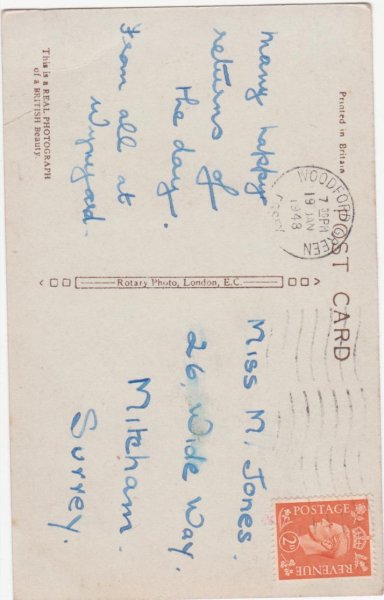 Printed in Britain
POST CARD
many happy
returns of
the day.
from all at
This is a REAL PHOTOGRAPH
of a BRITISH Beauty.
Rotary Photo, London, E.C.
WOODFORD GREEN
7 30PM
19 JAN
1948
ESSEX
POSTAGE
2D
REVENUE
Miss M. Jones.
26, Wide Way.
Mitcham.
Surrey.